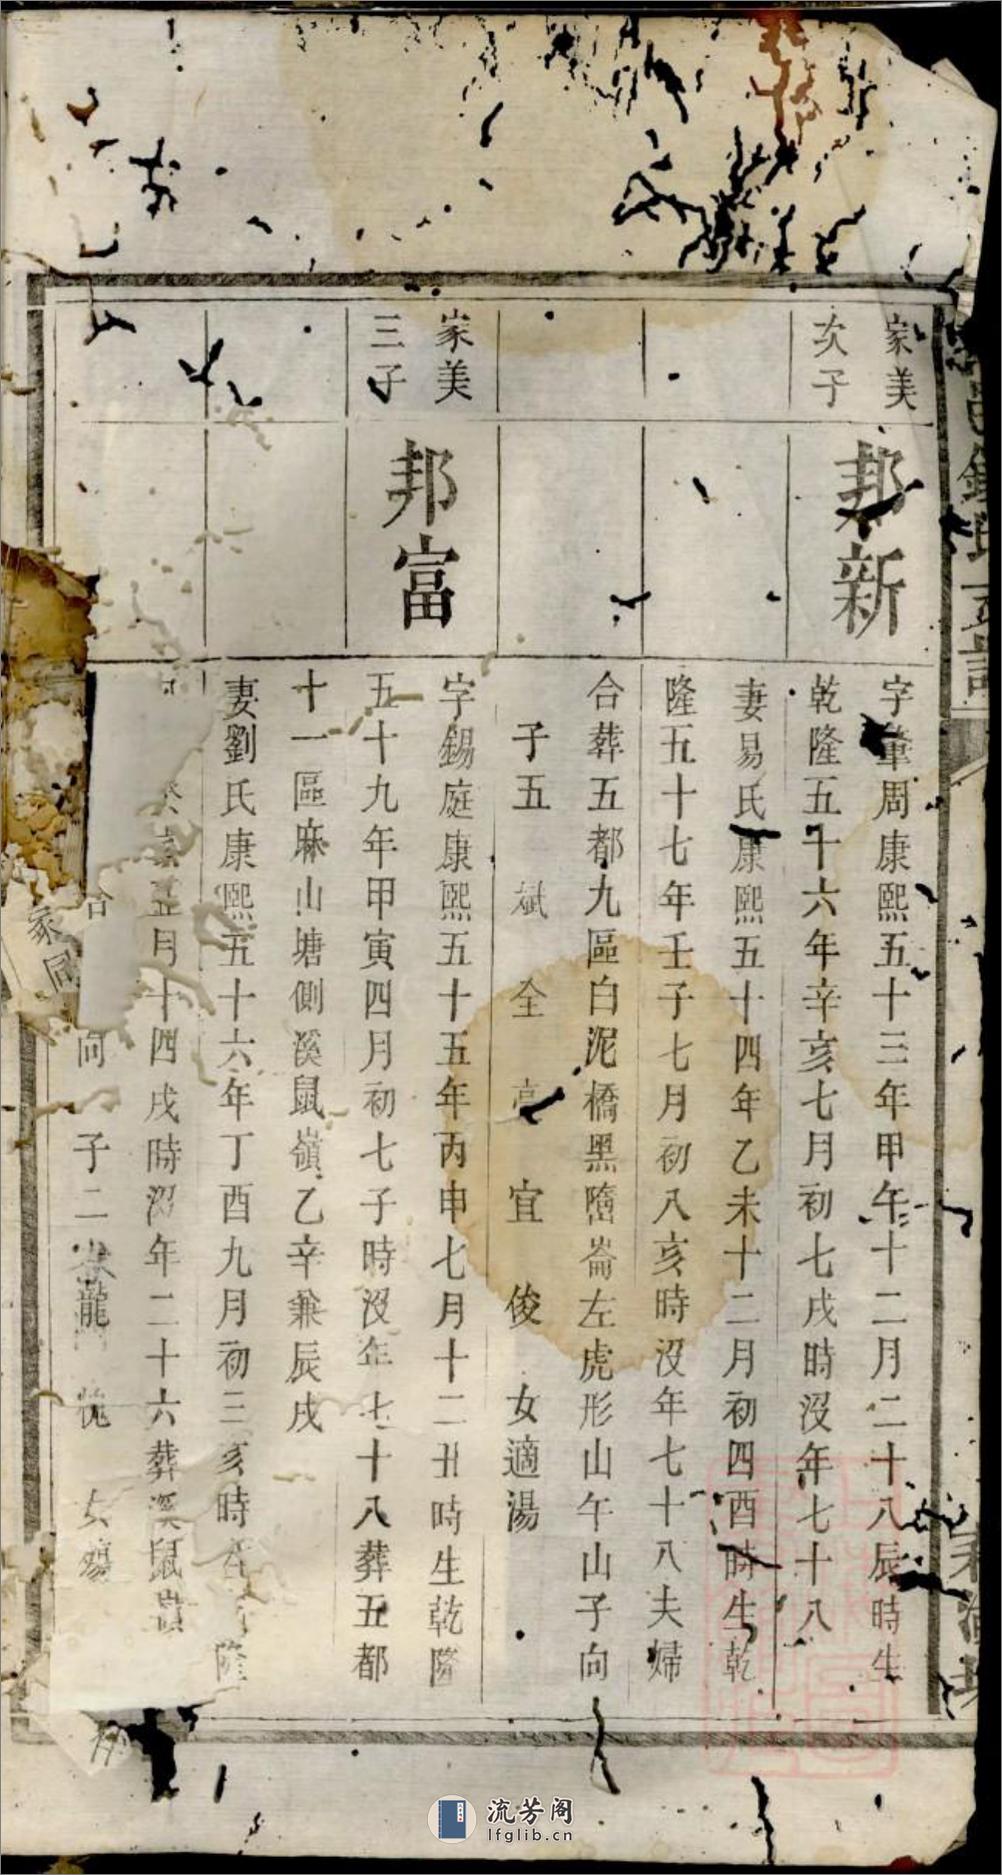 家美
次子
邦新
字肇周康熙五十三年甲午十二月二十八辰時生
乾隆五十六年辛亥七月初七戌時沒年七十八
妻易氏康熙五十四年乙未十二月初四酉時生乾
隆五十七年壬子七月初八亥時沒年七十八夫婦
合葬五都九區白泥橋黑墮崙左虎形山午山子向
子五 斌 全 高 宜 俊 女適湯
家美
三子
邦富
字錫庭康熙五十五年丙申七月十二丑時生乾隆
五十九年甲寅四月初七子時沒年七十八葬五都
十一區麻山塘側溪鼠嶺乙辛兼辰戌
妻劉氏康熙五十六年丁酉九月初三亥時 隆
五月十四戌時沒年二十六葬溪鼠嶺
合 向 子二 龍 女殤
家同
流芳阁
lfglib.cn